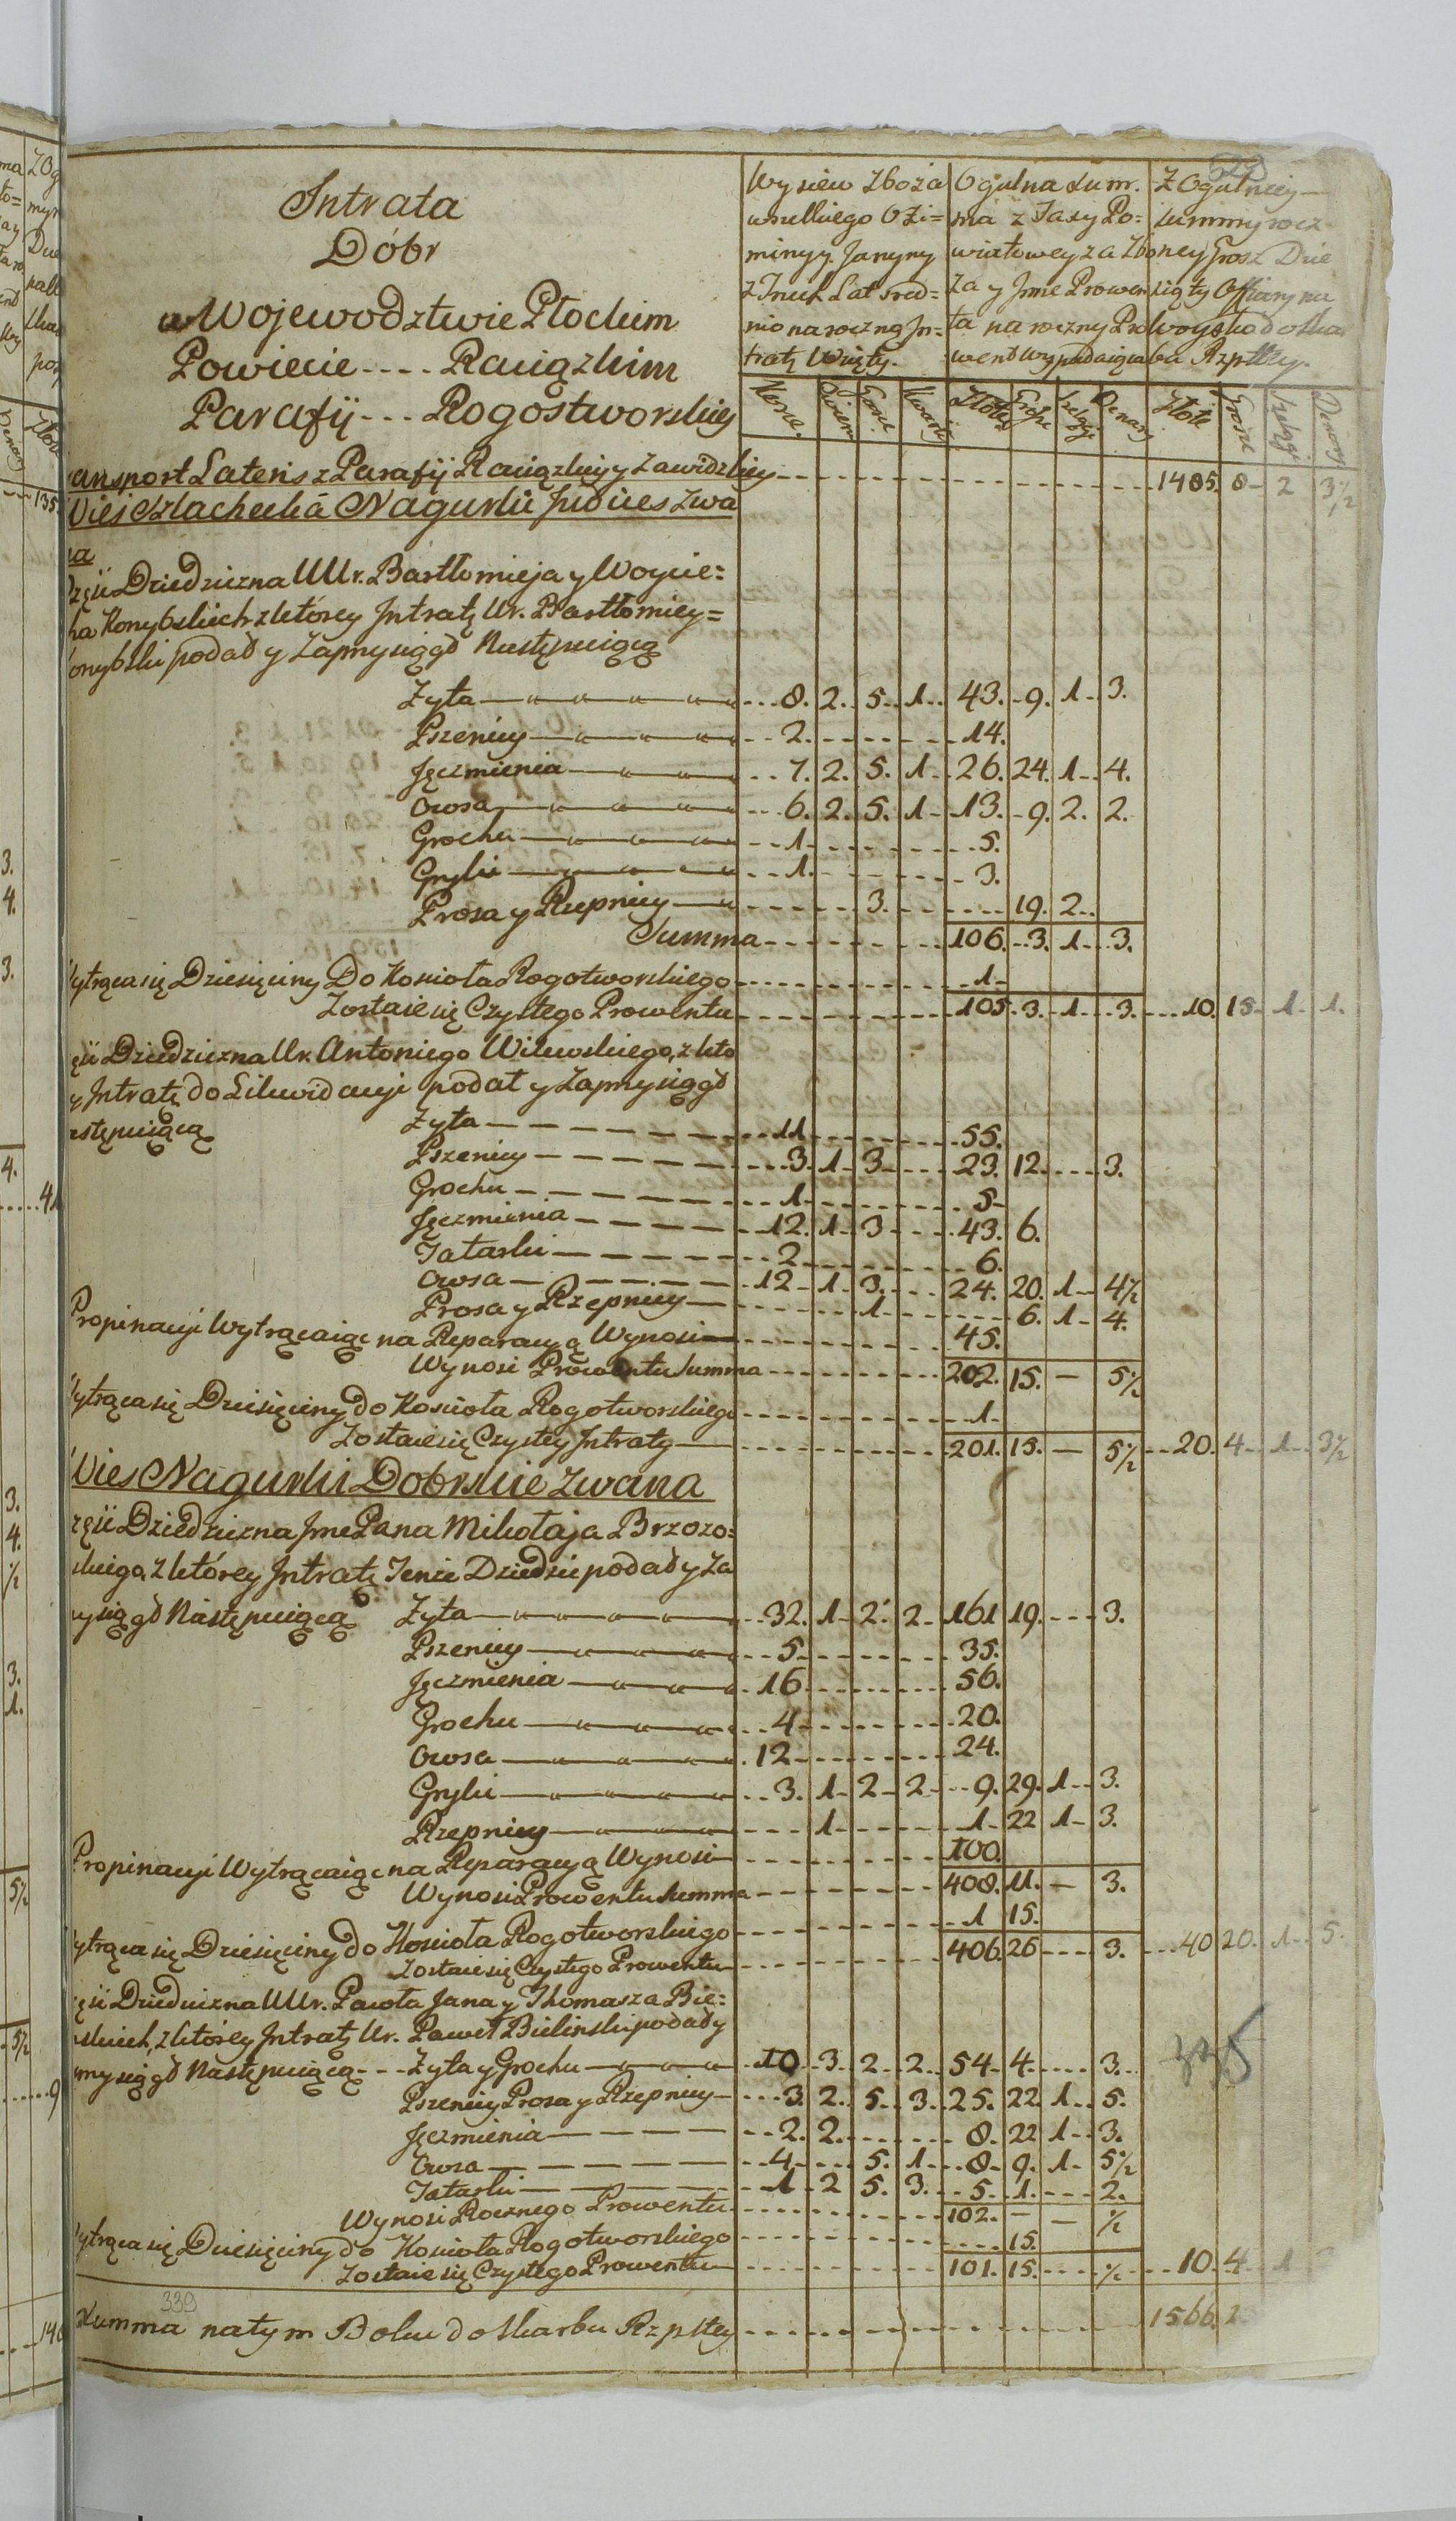 Intrata
Dóbr
w Wojewodztwie Płockim
Powiecie .... Raciązkim
Parafij ... Rogostworskiey
Wysiew Zboża
wszelkiego Ozi=
miny y Jaryny
z Trzech Lat śred=
nio na roczną In=
tratę Wzięty.
Ogulna Sum.
ma z Taxy Po=
wiatowey za Zbo
ża y Jnne Prowen
ta na roczny Pro
went wypadaiąca
Z Ogulney
Summy rocz
ney Grosz Dzie
siąty Offiary na
Woysko do Skar
bu Rzpltey.
Złote Grosze Szelągi Denary Złote Grosze Szelągi Denary
ansport Lateris z Parafij Raciązkiey y Zawidzkiey 1485. 8 2 3½
Wieś Szlachecka Nagurki
na
Dziedziczna UUr. Bartłomieja y Woycie=
z ktorey Intratę Ur. Bartłomiey=
podał y Zaprzysiągł Następuiącą
Zyta 8. 2. 5. 1. 43. 9. 1 3.
Pszenicy 2. 14.
Jęczmienia 7. 2. 5. 1 26. 24. 1 4.
Owsa 6. 2. 5. 1 13. 9. 2. 2.
Grochu 1 5.
Gryki 1. 3.
Prosa y Rzepnicy 3. 19. 2
Summa 106. 3. 1 3.
ytrąca się Dziesięciny Do Koscioła Rogotworskiego 1
Zostaie się Czystego Prowentu 105 3. 1 3. 10. 15 1 1.
Dziedziczna Ur. Antoniego Wilewskiego, z kto
y Intratę do Likwidacyi podał y Zaprzysiągł
astępuiącą
Zyta 11 55.
Pszenicy 3. 1 3 23. 12. 3.
Grochu 1 5
Jęczmienia 12. 1 3 43. 6.
Tatarki 2 6.
Owsa 12 1 3. 24. 20. 1 4½
Prosa y Rzepnicy 1 6. 1 4.
Propinacyi Wytrącaiąc na Reparacyą Wynosi 45.
Wynosi Prowentu Summa 202. 15. — 5½
ytrąca się Dziesięciny do Koscioła Rogotworskiego 1
Zostaie się Czystey Intraty 201. 15. — 5½ 20. 4 1 3½
Wies Nagurki Dobrskie Zwana
Dziedziczna Jme Pana Mikołaja Brzozo=
skiego, z ktorey Intratę Tenże Dziedzic podał y Za
ysiągł Następuiącą
Zyta 32. 1 2. 2 161 19. 3.
Pszenicy 5 35.
Jęczmienia 16 56.
Grochu 4 20.
Owsa 12 24.
Gryki 3. 1 2 2 9. 29. 1 3.
Rzepnicy 1 1 22 1 3.
Propinacyi Wytrącaiąc na Reparacyą Wynosi 100.
Wynosi Prowentu Summa 408. 11. — 3.
ytrąca się Dziesięciny do Koscioła Rogotworskiego 1 15.
Zostaie się Czystego Prowentu 406. 26 3. 40 20. 1 5.
Dziedziczna UUr. Pawła Jana y Thomasza Bie=
z ktorey Intratę Ur. Paweł Bielinski podał y
mysiągł Następuiącą
Zyta y Grochu 10 3 2 2. 54 4. 3.
Pszenicy Prosa y Rzepnicy 3. 2. 5. 3. 25. 22. 1 5.
Jęczmienia 2. 2. 8. 22 1 3.
Owsa 4 5. 1 8 9. 1 5½
Tatarki 1 2 5. 3. 5 1. 2.
Wynosi Rocznego Prowentu 102. — — ½
ytrąca się Dziesięciny do Koscioła Rogotworskiego 15.
Zostaie się Czystego Prowentu 101. 15. ½ 10. 4 1
335
339
Summa na tym Boku do Skarbu Rzpltey 1566.